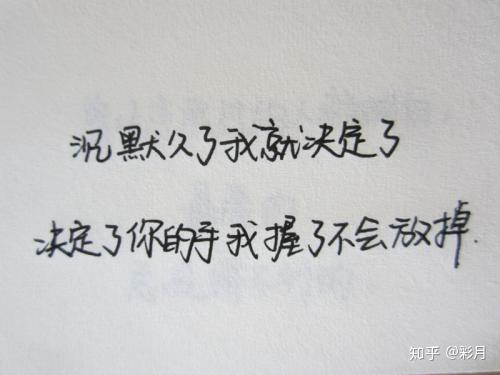 沉默久了我就决定了
决定了你的手我握了不会放掉.
知乎 @彩月